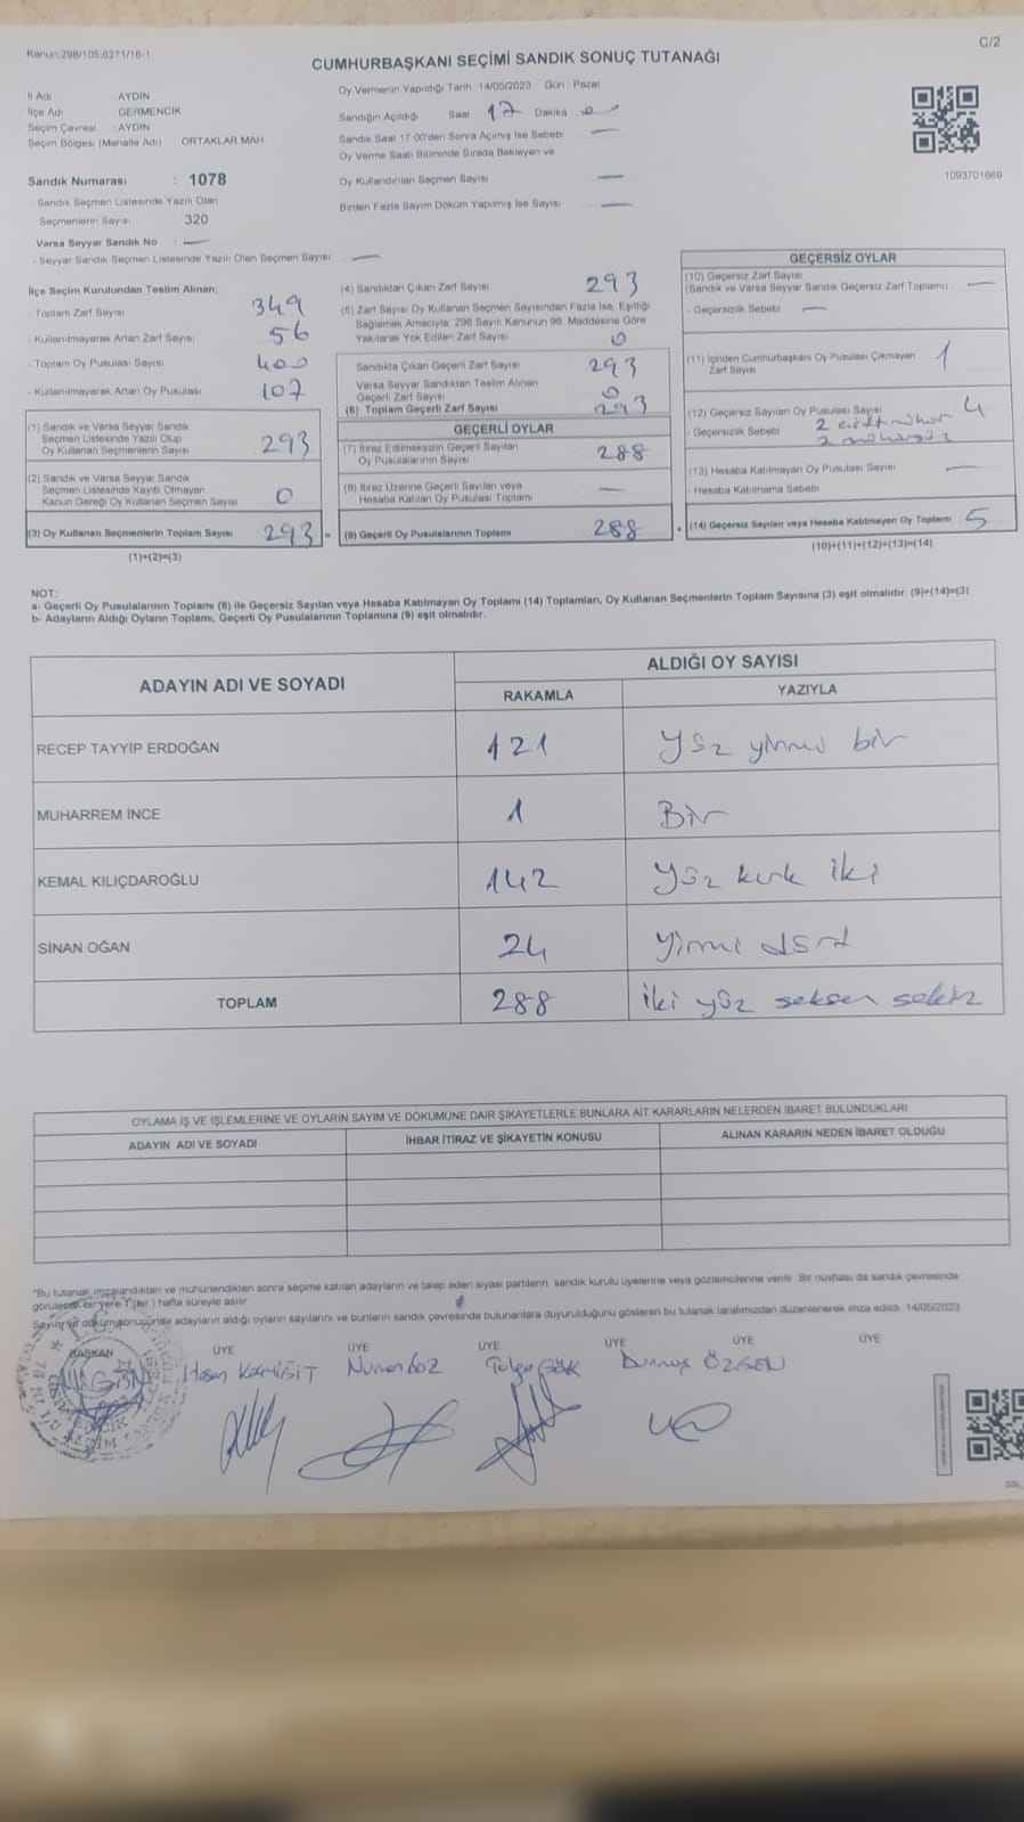 Kanun:298/105,6271/16-1
C/2
CUMHURBAŞKANI SEÇİMİ SANDIK SONUÇ TUTANAĞI
İl Adı AYDIN
İlçe Adı GERMENCİK
Seçim Çevresi AYDIN
Seçim Bölgesi (Mahalle Adı) ORTAKLAR MAH
Sandık Numarası : 1078
Sandık Seçmen Listesinde Yazılı Olan
Seçmenlerin Sayısı 320
Varsa Seyyar Sandık No : —
- Seyyar Sandık Seçmen Listesinde Yazılı Olan Seçmen Sayısı —
Oy Vermenin Yapıldığı Tarih 14/05/2023 Gün : Pazar
Sandığın Açıldığı Saat 17 Dakika 0
Sandık Saat 17:00'den Sonra Açılmış İse Sebebi —
Oy Verme Saati Bitiminde Sırada Bekleyen ve
Oy Kullandırılan Seçmen Sayısı —
Birden Fazla Sayım Döküm Yapılmış İse Sayısı —
1093701669
İlçe Seçim Kurulundan Teslim Alınan;
- Toplam Zarf Sayısı 349
- Kullanılmayarak Artan Zarf Sayısı 56
- Toplam Oy Pusulası Sayısı 400
- Kullanılmayarak Artan Oy Pusulası 107
(1) Sandık ve Varsa Seyyar Sandık
Seçmen Listesinde Yazılı Olup
Oy Kullanan Seçmenlerin Sayısı 293
(2) Sandık ve Varsa Seyyar Sandık
Seçmen Listesinde Kayıtlı Olmayan
Kanun Gereği Oy Kullanan Seçmen Sayısı 0
(3) Oy Kullanan Seçmenlerin Toplam Sayısı 293
(1)+(2)=(3)
(4) Sandıktan Çıkan Zarf Sayısı 293
(5) Zarf Sayısı Oy Kullanan Seçmen Sayısından Fazla İse, Eşitliği
Sağlamak Amacıyla, 298 Sayılı Kanunun 98. Maddesine Göre
Yakılarak Yok Edilen Zarf Sayısı 0
Sandıkta Çıkan Geçerli Zarf Sayısı 293
Varsa Seyyar Sandıktan Teslim Alınan
Geçerli Zarf Sayısı 0
(6) Toplam Geçerli Zarf Sayısı 293
GEÇERLİ OYLAR
(7) İtiraz Edilmeksizin Geçerli Sayılan
Oy Pusulalarının Sayısı 288
(8) İtiraz Üzerine Geçerli Sayılan veya
Hesaba Katılan Oy Pusulası Toplamı —
(9) Geçerli Oy Pusulalarının Toplamı 288
GEÇERSİZ OYLAR
(10) Geçersiz Zarf Sayısı
(Sandık ve Varsa Seyyar Sandık Geçersiz Zarf Toplamı) —
- Geçersizlik Sebebi —
(11) İçinden Cumhurbaşkanı Oy Pusulası Çıkmayan
Zarf Sayısı 1
(12) Geçersiz Sayılan Oy Pusulası Sayısı 4
- Geçersizlik Sebebi 2 çift mühür
2 mühürsüz
(13) Hesaba Katılmayan Oy Pusulası Sayısı —
- Hesaba Katılmama Sebebi
(14) Geçersiz Sayılan veya Hesaba Katılmayan Oy Toplamı 5
(10)+(11)+(12)+(13)=(14)
NOT:
a- Geçerli Oy Pusulalarının Toplamı (9) ile Geçersiz Sayılan veya Hesaba Katılmayan Oy Toplamı (14) Toplamları, Oy Kullanan Seçmenlerin Toplam Sayısına (3) eşit olmalıdır. (9)+(14)=(3)
b- Adayların Aldığı Oyların Toplamı, Geçerli Oy Pusulalarının Toplamına (9) eşit olmalıdır.
ADAYIN ADI VE SOYADI
ALDIĞI OY SAYISI
RAKAMLA YAZIYLA
RECEP TAYYİP ERDOĞAN 121 Yüz yirmi bir
MUHARREM İNCE 1 Bir
KEMAL KILIÇDAROĞLU 142 Yüz kırk iki
SİNAN OĞAN 24 Yirmi dört
TOPLAM 288 İki yüz seksen sekiz
OYLAMA İŞ VE İŞLEMLERİNE VE OYLARIN SAYIM VE DÖKÜMÜNE DAİR ŞİKAYETLERLE BUNLARA AİT KARARLARIN NELERDEN İBARET BULUNDUKLARI
ADAYIN ADI VE SOYADI İHBAR İTİRAZ VE ŞİKAYETİN KONUSU ALINAN KARARIN NEDEN İBARET OLDUĞU
*Bu tutanak imzalandıktan ve mühürlendikten sonra seçime katılan adayların ve talep eden siyasi partilerin, sandık kurulu üyelerine veya gözlemcilerine verilir. Bir nüshası da sandık çevresinde
görülecek bir yere 1 (bir) hafta süreyle asılır.
Sayım ve döküm sonucunda adayların aldığı oyların sayılarını ve bunların sandık çevresinde bulunanlara duyurulduğunu gösteren bu tutanak tarafımızdan düzenlenerek imza edildi. 14/05/2023
BAŞKAN ÜYE ÜYE ÜYE ÜYE ÜYE ÜYE
Nuran Tolga GÖK Durmuş ÖZGEN